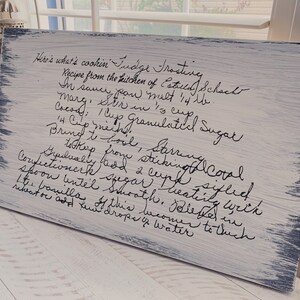 Here's what's cookin' Fudge Frosting
Recipe from the kitchen of Esther Schach
In sauce pan melt 1/4 lb
Marg, stir in 1/3 cup
Cocoa, 1 cup Granulated Sugar
1/4 cup milk,
Bring to boil, stirring
to keep from sticking. Cool
Gradually add 2 cups sifted
Confectioners sugar, beating with
spoon until smooth. Blend in
vanilla. If this becomes to thick
add few drops water